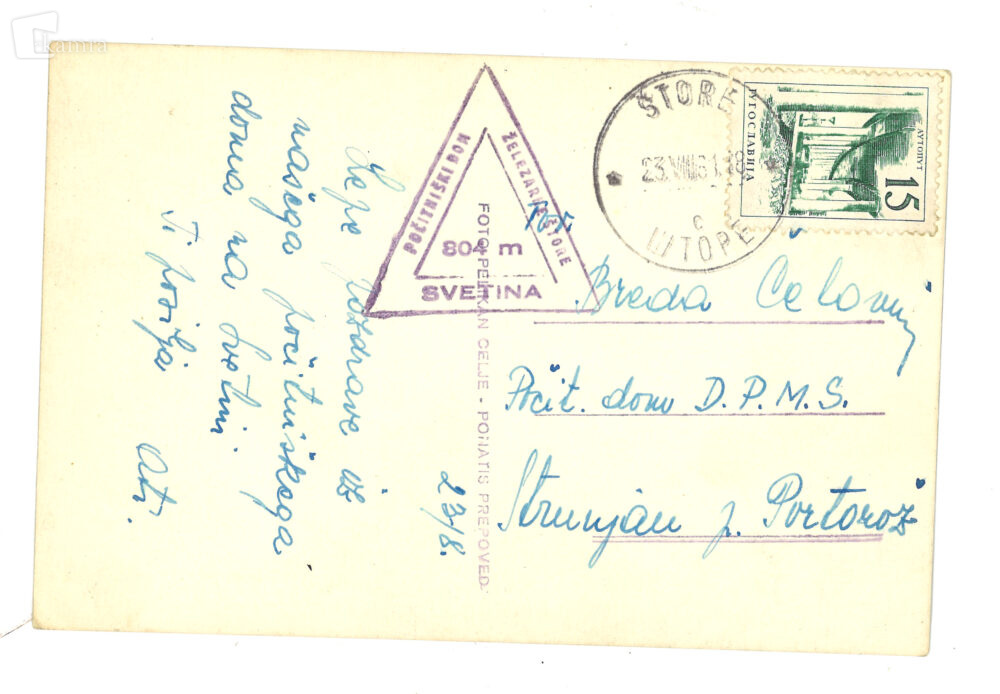 kamra
Lepe pozdrave iz
našega počitniškega
doma na Svetini.
Ti pošilja
ati.
23/8.
POČITNIŠKI DOM
ŽELEZARNE ŠTORE
804 m
SVETINA
FOTO PELIKAN CELJE - PONATIS PREPOVED.
ŠTORE
23.VIII.61.18
c
ШТОРЕ
ЈУГОСЛАВИЈА
АУТОПУТ
15
Breda
Počit. dom D.P.M.S.
Strunjan p. Portorož